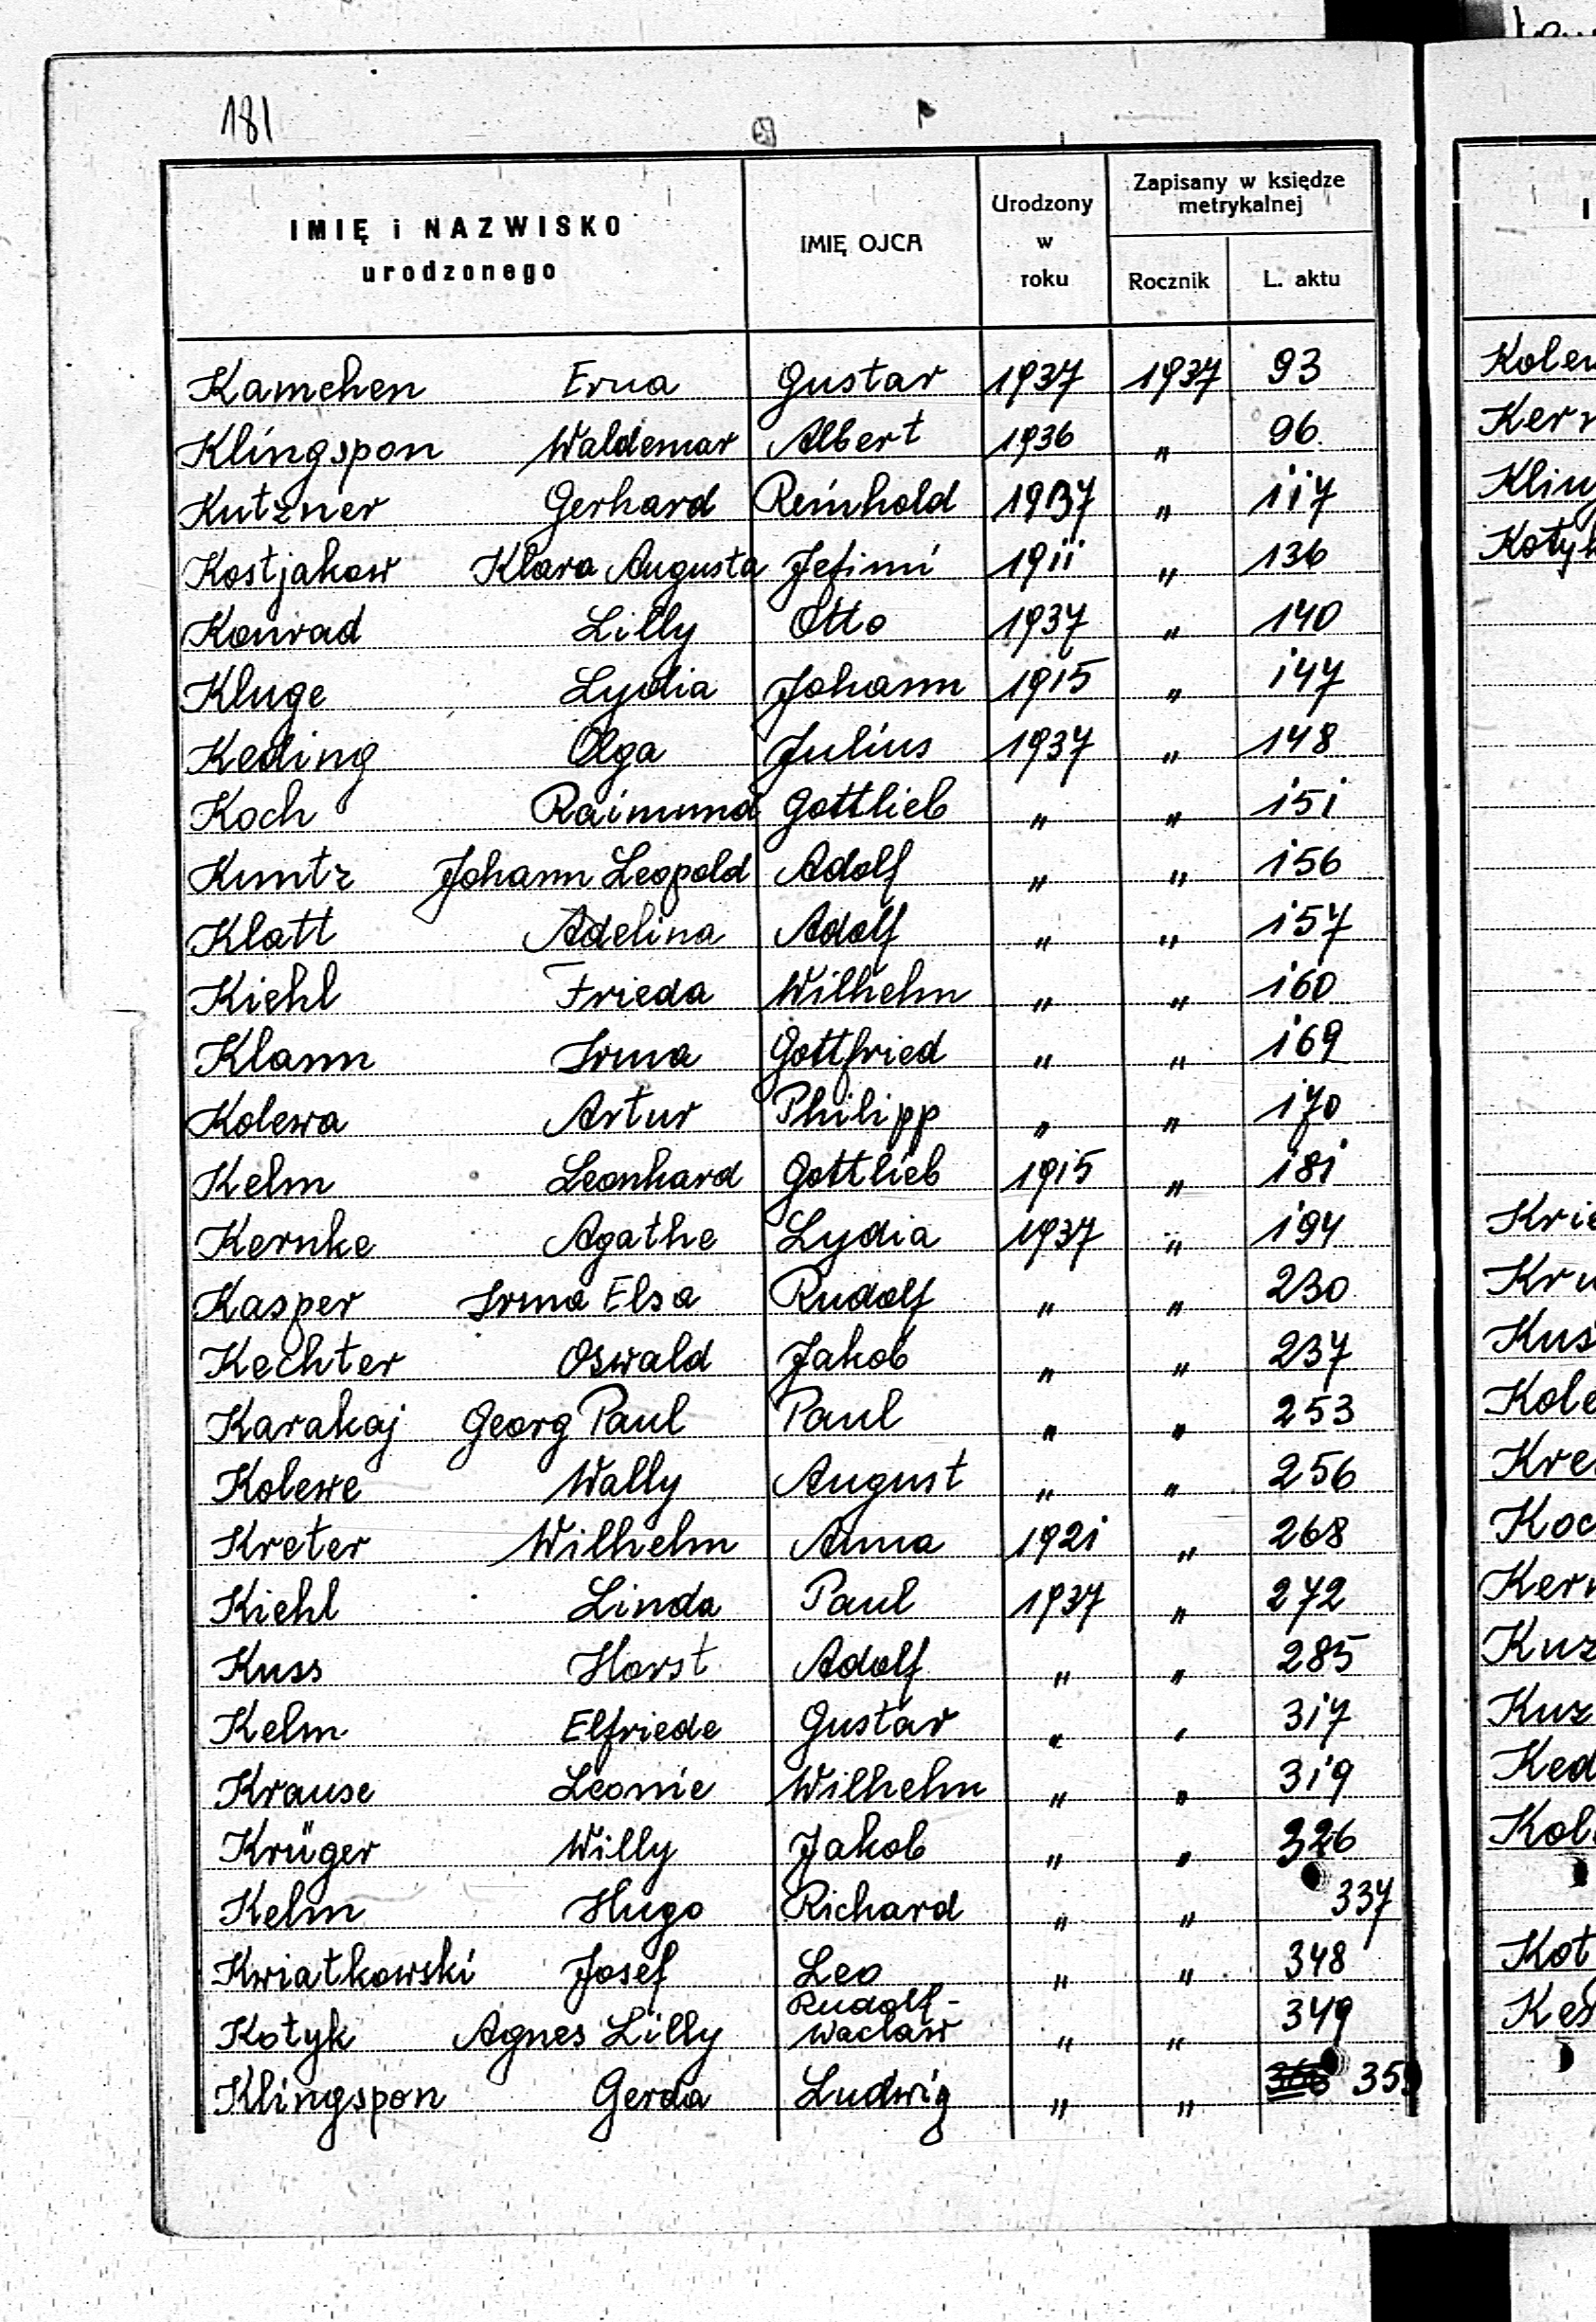 181
IMIĘ i NAZWISKO
urodzonego
IMIĘ OJCA
Urodzony
w
roku
Zapisany w księdze
metrykalnej
Rocznik
L. aktu
Kamchen Erna Gustav 1937 1937 93
Klingspon Waldemar Albert 1936 " 96
Kutzner Gerhard Reinhold 1937 " 117
Kostjakow Klara Augusta Jefimi 1911 " 136
Konrad Lilly Otto 1937 " 140
Kluge Lydia Johann 1915 " 147
Keding Olga Julius 1937 " 148
Koch Raimund Gottlieb " " 151
Kuntz Johann Leopold Adolf " " 156
Klatt Adelina Adolf " " 157
Kiehl Frieda Wilhelm " " 160
Klann Irma Gottfried " " 169
Kolewa Artur Philipp " " 170
Kelm Leonhard Gottlieb 1915 " 181
Kernke Agathe Lydia 1937 " 194
Kasper Irma Elsa Rudolf " " 230
Kechter Oswald Jakob " " 237
Karakaj Georg Paul Paul " " 253
Kolewe Wally August " " 256
Kreter Wilhelm Anna 1921 " 268
Kiehl Linda Paul 1937 " 272
Kuss Horst Adolf " " 285
Kelm Elfriede Gustav " " 317
Krause Leonie Wilhelm " " 319
Krüger Willy Jakob " " 326
Kelm Hugo Richard " " 337
Kwiatkowski Josef Leo " " 348
Rudolf-
Kotyk Agnes Lilly Wacław " " 349
Klingspon Gerda Ludwig " "